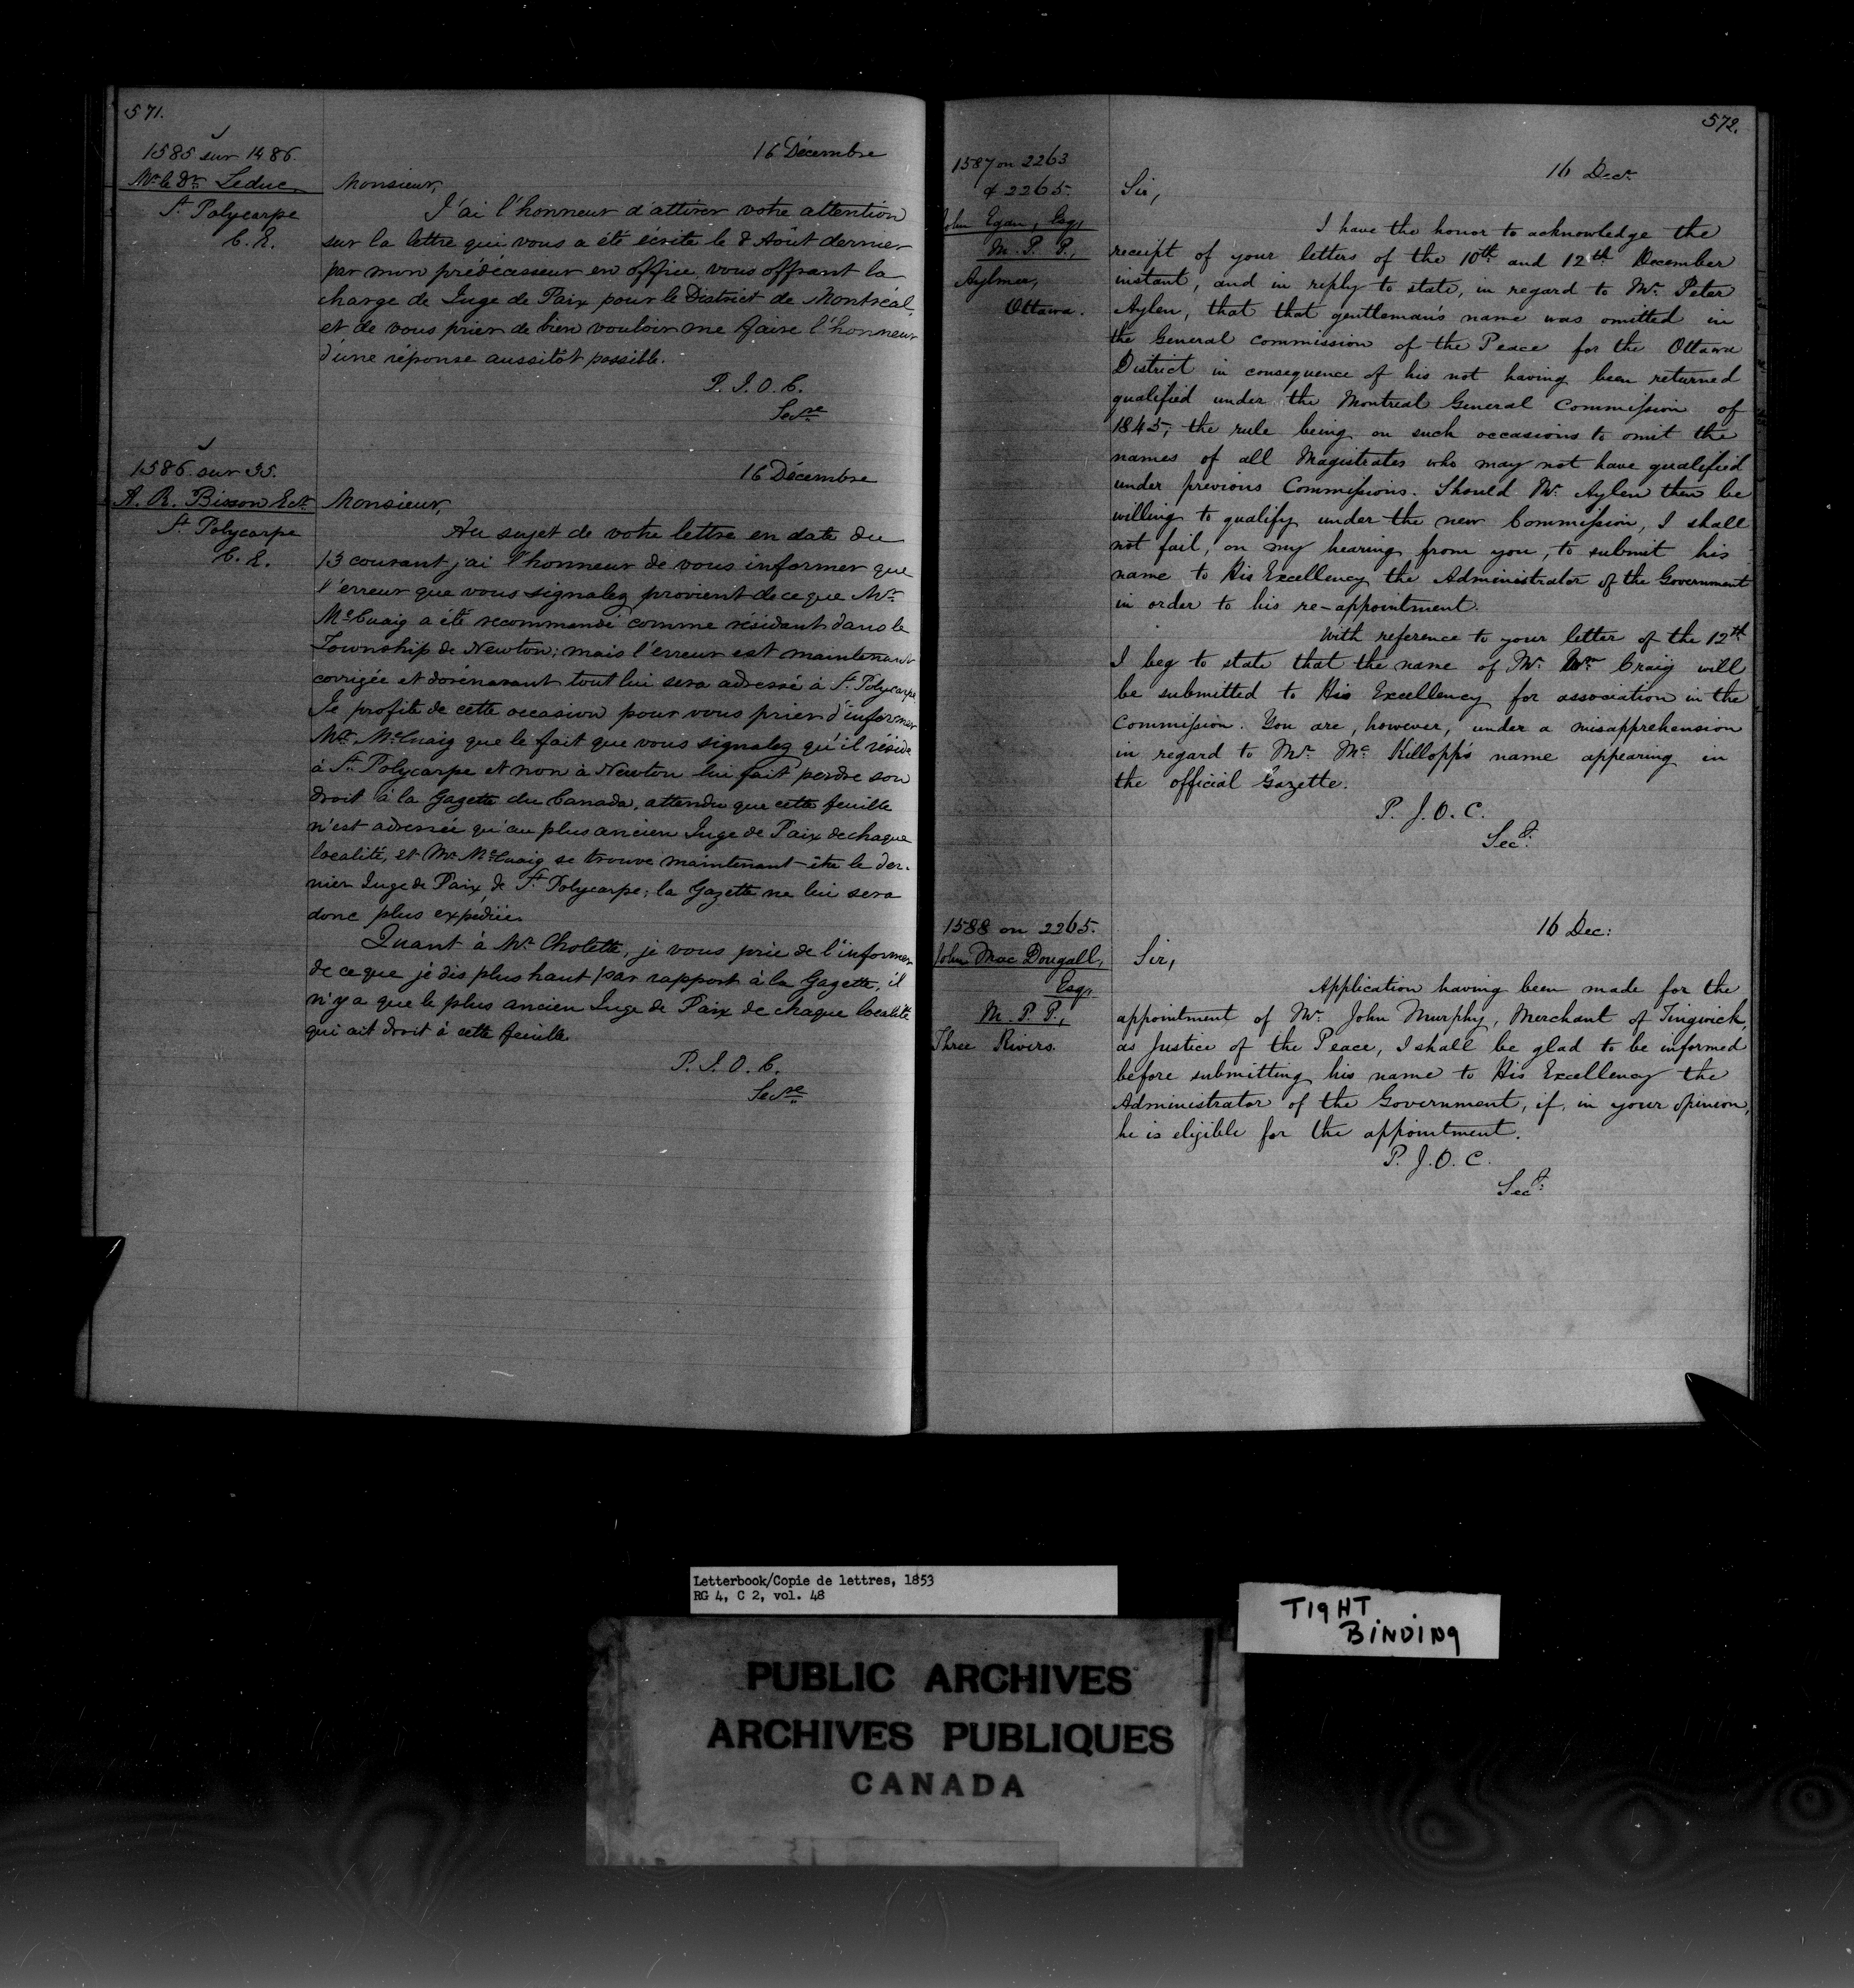 571.
1585 sur 1486.
Mr le Dr Leduc
St Polycarpe
C. E.
16 Décembre
Monsieur,
J'ai l'honneur d'attirer votre attention
sur la lettre qui vous a été écrite le 8 Août dernier
par mon prédécesseur en office, vous offrant la
charge de Juge de Paix pour le District de Montréal,
et de vous prier de bien vouloir me faire l'honneur
d'une réponse aussitôt possible.
P. J. O. C.
Secre
1586 sur 35.
A. R. Bisson Ecr
St Polycarpe
C. E.
16 Décembre
Monsieur,
Au sujet de votre lettre en date du
13 courant j'ai l'honneur de vous informer que
l'erreur que vous signalez provient de ce que Mr
McCuaig a été recommandé comme résidant dans le
Township de Newton; mais l'erreur est maintenant
corrigée et dorénavant tout lui sera adressé à St Polycarpe.
Je profite de cette occasion pour vous prier d'informer
Mr McCuaig que le fait que vous signalez qu'il réside
à St Polycarpe et non à Newton lui fait perdre son
droit à la Gazette du Canada, attendu que cette feuille
n'est adressée qu'au plus ancien Juge de Paix de chaque
localité, et Mr McCuaig se trouve maintenant être le der-
nier Juge de Paix de St Polycarpe; la Gazette ne lui sera
donc plus expédiée.
Quant à Mr Cholette, je vous prie de l'informer
de ce que je dis plus haut par rapport à la Gazette, il
n'y a que le plus ancien Juge de Paix de chaque localité
qui ait droit à cette feuille.
P. J. O. C.
Secre
572.
1587 on 2263
& 2265.
John Egan, Esqr
M. P. P.,
Aylmer,
Ottawa.
16 Decr
Sir,
I have the honor to acknowledge the
receipt of your letters of the 10th and 12th December
instant, and in reply to state, in regard to Mr Peter
Aylen, that that gentleman's name was omitted in
the General Commission of the Peace for the Ottawa
District in consequence of his not having been returned
qualified under the Montreal General Commission of
1845; the rule being on such occasions to omit the
names of all Magistrates who may not have qualified
under previous Commissions. Should Mr Aylen then be
willing to qualify under the new Commission, I shall
not fail, on my hearing from you, to submit his
name to His Excellency the Administrator of the Government
in order to his re-appointment.
With reference to your letter of the 12th
I beg to state that the name of Mr Wm Craig will
be submitted to His Excellency for association in the
Commission. You are, however, under a misapprehension
in regard to Mr McKillopp's name appearing in
the official Gazette.
P. J. O. C.
Secy
1588 on 2265.
John MacDougall,
Esqr
M. P. P.,
Three Rivers.
16 Dec:
Sir,
Application having been made for the
appointment of Mr John Murphy, Merchant of Tingwick,
as Justice of the Peace, I shall be glad to be informed
before submitting his name to His Excellency the
Administrator of the Government, if, in your opinion,
he is eligible for the appointment.
P. J. O. C.
Secy
Letterbook/Copie de lettres, 1853
RG 4, C 2, vol. 48
TIGHT
BINDING
PUBLIC ARCHIVES
ARCHIVES PUBLIQUES
CANADA